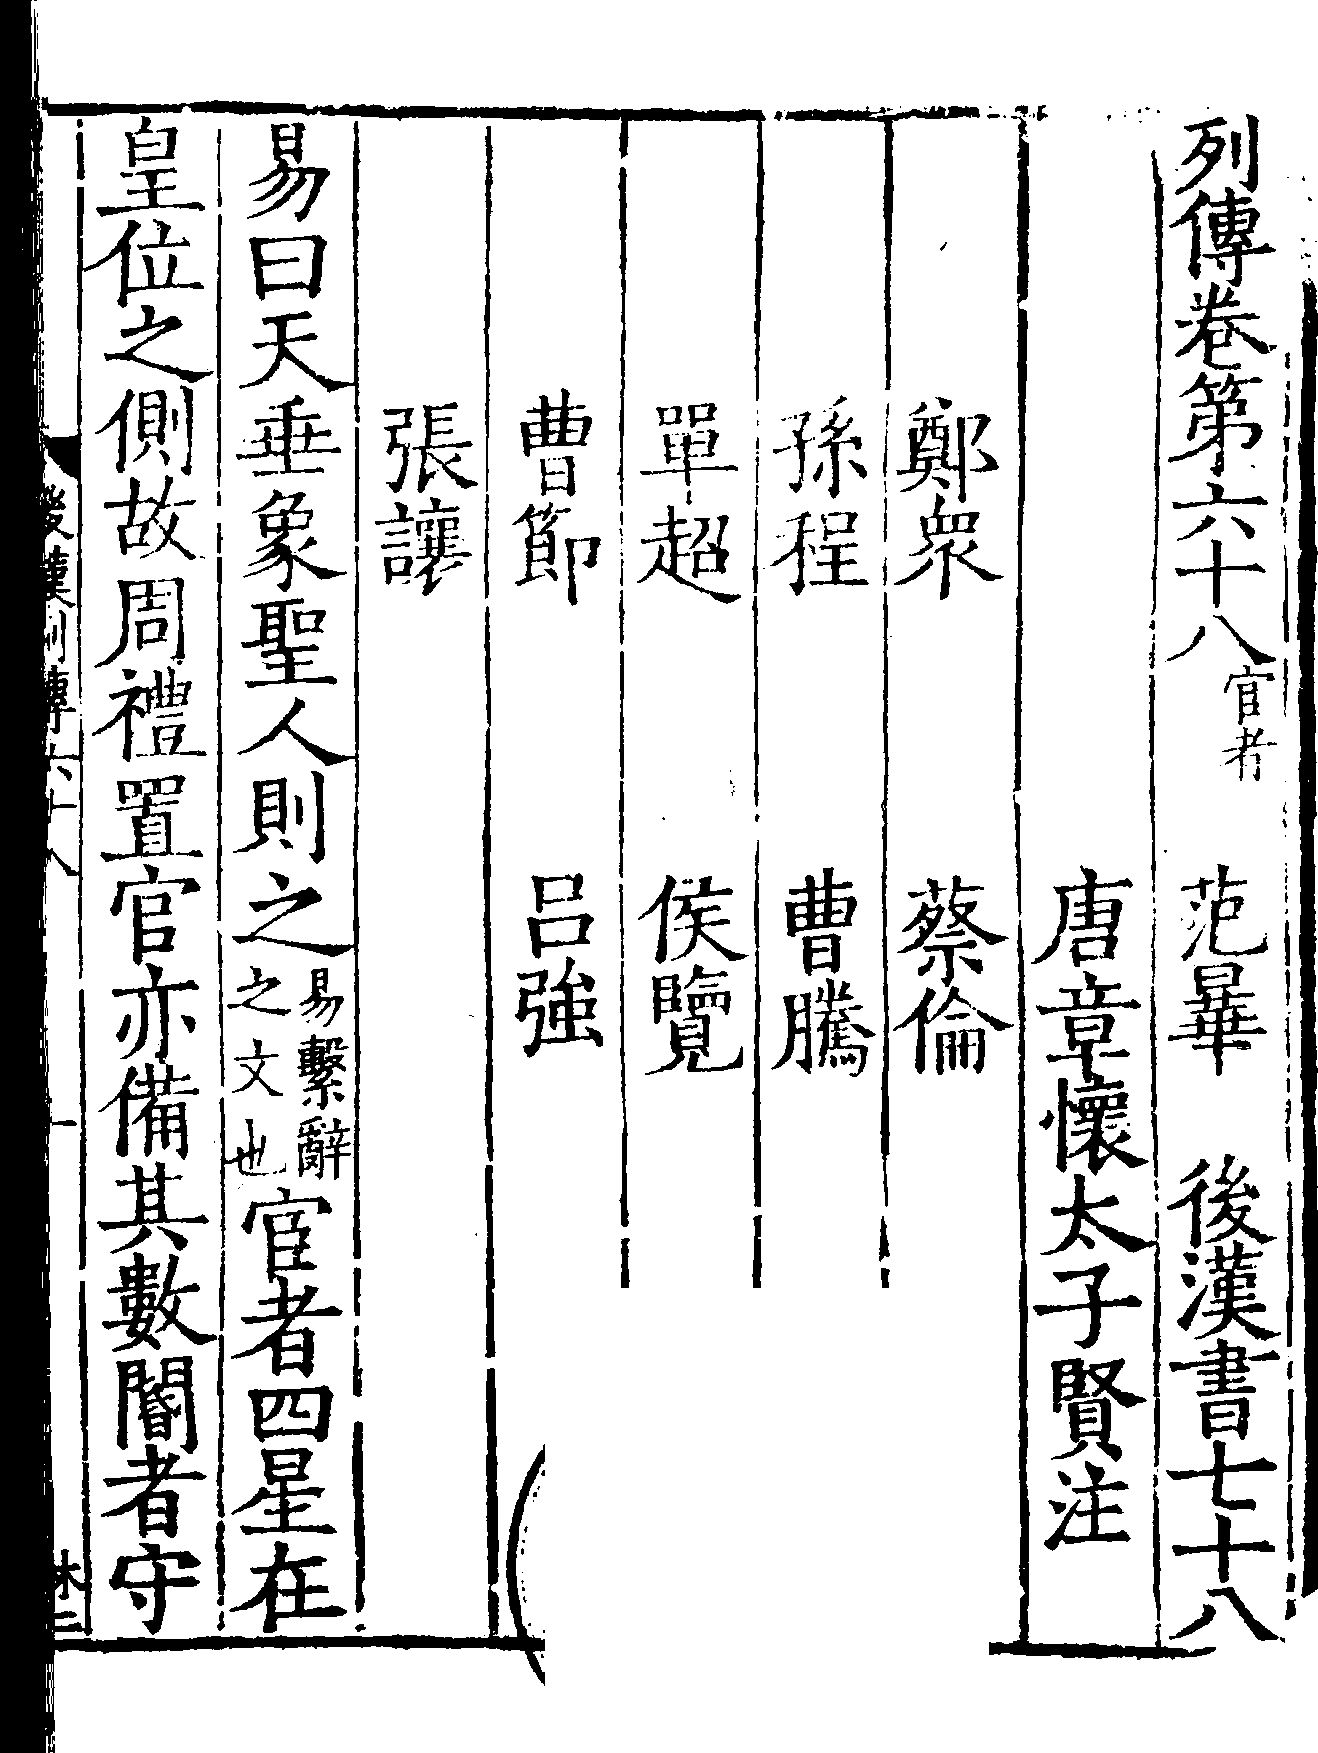 列傳卷第六十八宦者 范曄 後漢書七十八
唐章懷太子賢注
鄭眾 蔡倫
孫程 曹騰
單超 侯覽
曹節 呂強
張讓
易曰天垂象聖人則之易繫辭之文也宦者四星在
皇位之側故周禮置官亦備其數閽者守
後漢列傳六十八 一